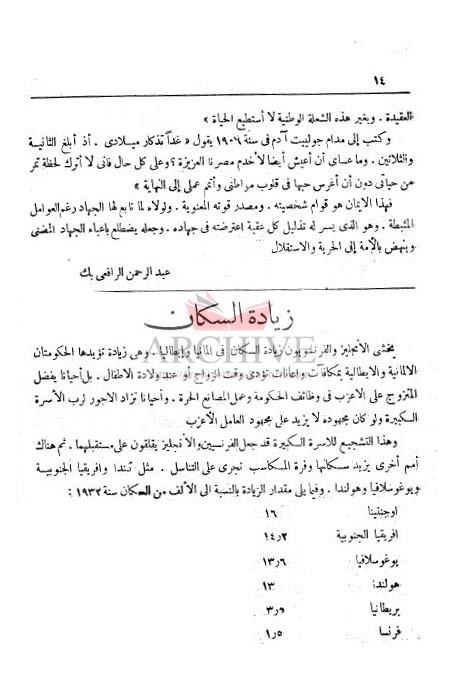 ١٤
العقيدة . وبغير هذه الشعلة الوطنية لا أستطيع الحياة »
وكتب إلى مدام جولييت آدم فى سنة ١٩٠٦ يقول « غداً تذكار ميلادى . أذ أبلغ الثانية
والثلاثين . وما عساى أن أعيش أيضا لأخدم مصرنا العزيزة ؟ وعلى كل حال فانى لا أترك لحظة تمر
من حياتى دون أن أغرس حبها فى قلوب مواطنى وأتم عملى إلى النهاية »
فهذا الايمان هو قوام شخصيته . ومصدر قوته المعنوية . ولولاه لما تابع لها الجهاد رغم العوامل
المثبطة . وهو الذى يسر له تذليل كل عقبة اعترضته فى جهاده . وجعله يضطلع بأعباء الجهاد المضنى
وينهض بالأمة إلى الحرية والاستقلال
عبد الرحمن الرافعى بك
زيادة السكان
ARCHIVE
يخشى الأنجليز والفرنسويون زيادة السكان فى المانيا وإيطاليا . وهى زيادة تؤيدها الحكومتان
الالمانية والايطالية بمكافآت واعانات تؤدى وقت الزواج أو عند ولادة الاطفال . بل أحيانا يفضل
المتزوج على الاعزب فى وظائف الحكومة وعمل المصانع الحرة . وأحيانا تزاد الاجور لرب الأسرة
الكبيرة ولو كان مجهوده لا يزيد على مجهود العامل الأعزب
وهذا التشجيع للاسرة الكبيرة قد جعل الفرنسيين والأنجليز يقلقون على مستقبلهما . ثم هناك
أمم أخرى يزيد سكانها وفرة المكاسب تجرى على التناسل . مثل كندا وافريقيا الجنوبية
ويوغوسلافيا وهولندا . وفيما يلى مقدار الزيادة بالنسبة الى الألف من السكان سنة ١٩٣٢ :
اوجنتينا ١٦
افريقيا الجنوبية ١٤٫٢
يوغوسلافيا ١٣٫٦
هولندا ١٣
بريطانيا ٣٫٥
فرنسا ١٫٥